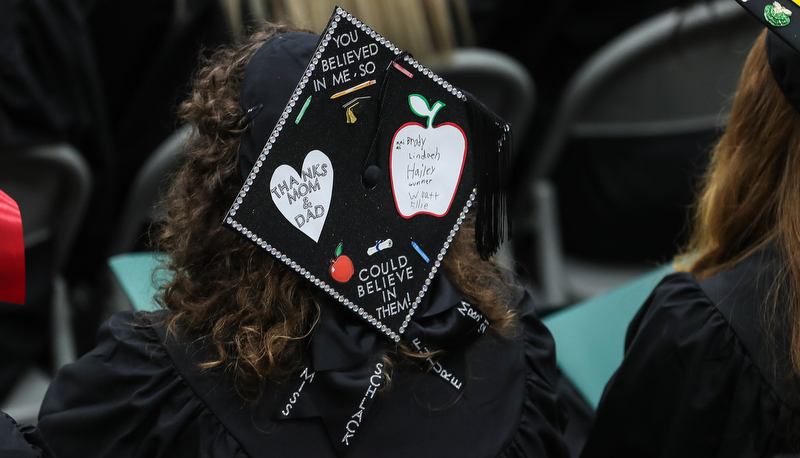 YOU
BELIEVED
IN ME, SO
THANKS
MOM
&
DAD
Brody
Lindach
Hailey
Gunner
Wyatt
Ellie
COULD
BELIEVE
IN
THEM!
MISS
SCHLACK
FUTURE
MRS